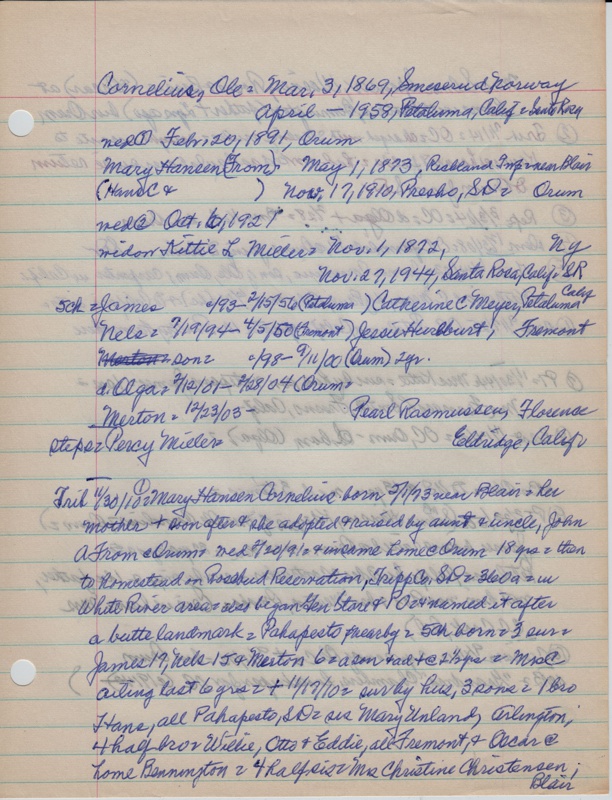 Cornelius, Ole = Mar. 3, 1869, Smeserud, Norway
April — 1958, Petaluma, Calif = Santa Rosa
wed ① Febr. 20, 1891, Orum
Mary Hansen (From) = May 1, 1873, Richland Twp = near Blair
(Hans C & ) Nov. 17, 1910, Presho, SD = Orum
wed ② Oct. 6, 1921
widow Kittie L Miller = Nov. 1, 1872, Ny
Nov. 27, 1944, Santa Rosa, Calif = SR
5ch = James -/93 - 2/15/56 (Petaluma) Catherine C Meyer, Petaluma Calif
Nels = 7/19/94 - 4/5/50 (Fremont) Jessie Hurlburt, Fremont
Merton = son = -/98 - 9/11/00 (Orum) 2yr.
d. Olga = 2/12/01 - 2/28/04 (Orum =
Merton = 12/23/03 - Pearl Rasmussen, Florence
steps = Percy Miller = Eldridge, Calif =
Trib 11/30/10 = ① Mary Hansen Cornelius born 5/1/73 near Blair = her
mother + soon after & she adopted & raised by aunt & uncle, John
A From @ Orum = wed 2/20/91 = & income home @ Orum 18 yrs = then
to homestead on Rosebud Reservation, Tripp Co, SD = 360a = in
White River area = also began Gen Store & PO = & named it after
a butte landmark = Pahapesto nearby = 5ch born = 3 sur =
James 17, Nels 15 & Merton 6 = a son & ad + @ 2½ yrs = Mrs C
ailing last 6 yrs = + 11/17/10 = sur by hus, 3 sons = 1 bro
Hans, all Pahapesto, SD = sis Mary Unland, Arlington;
4 half bro = Willie, Otto & Eddie, all Fremont, & Oscar @
home Bennington = 4 half sis = Mrs Christine Christensen,
Blair